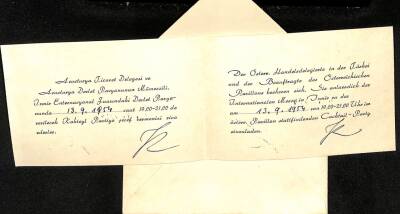 Avusturya Ticaret Delegesi ve
Avusturya Devlet Pavyonunun Mümessili,
İzmir Enternasyonal Fuarındaki Devlet Pavyo-
nunda 13.9.1954 saat 19.00-21.00 de
verilecek Kokteyl Partiye şeref vermenizi rica
ederler.
Der Österr. Handelsdelegierte in der Türkei
und der Beauftragte des Österreichischen
Pavillons beehren sich, Sie anlässlich der
Internationalen Messe in Izmir zu der
am 13.9.1954 um 19.00-21.00 Uhr im
österr. Pavillon stattfindenden Cocktail-Party
einzuladen.